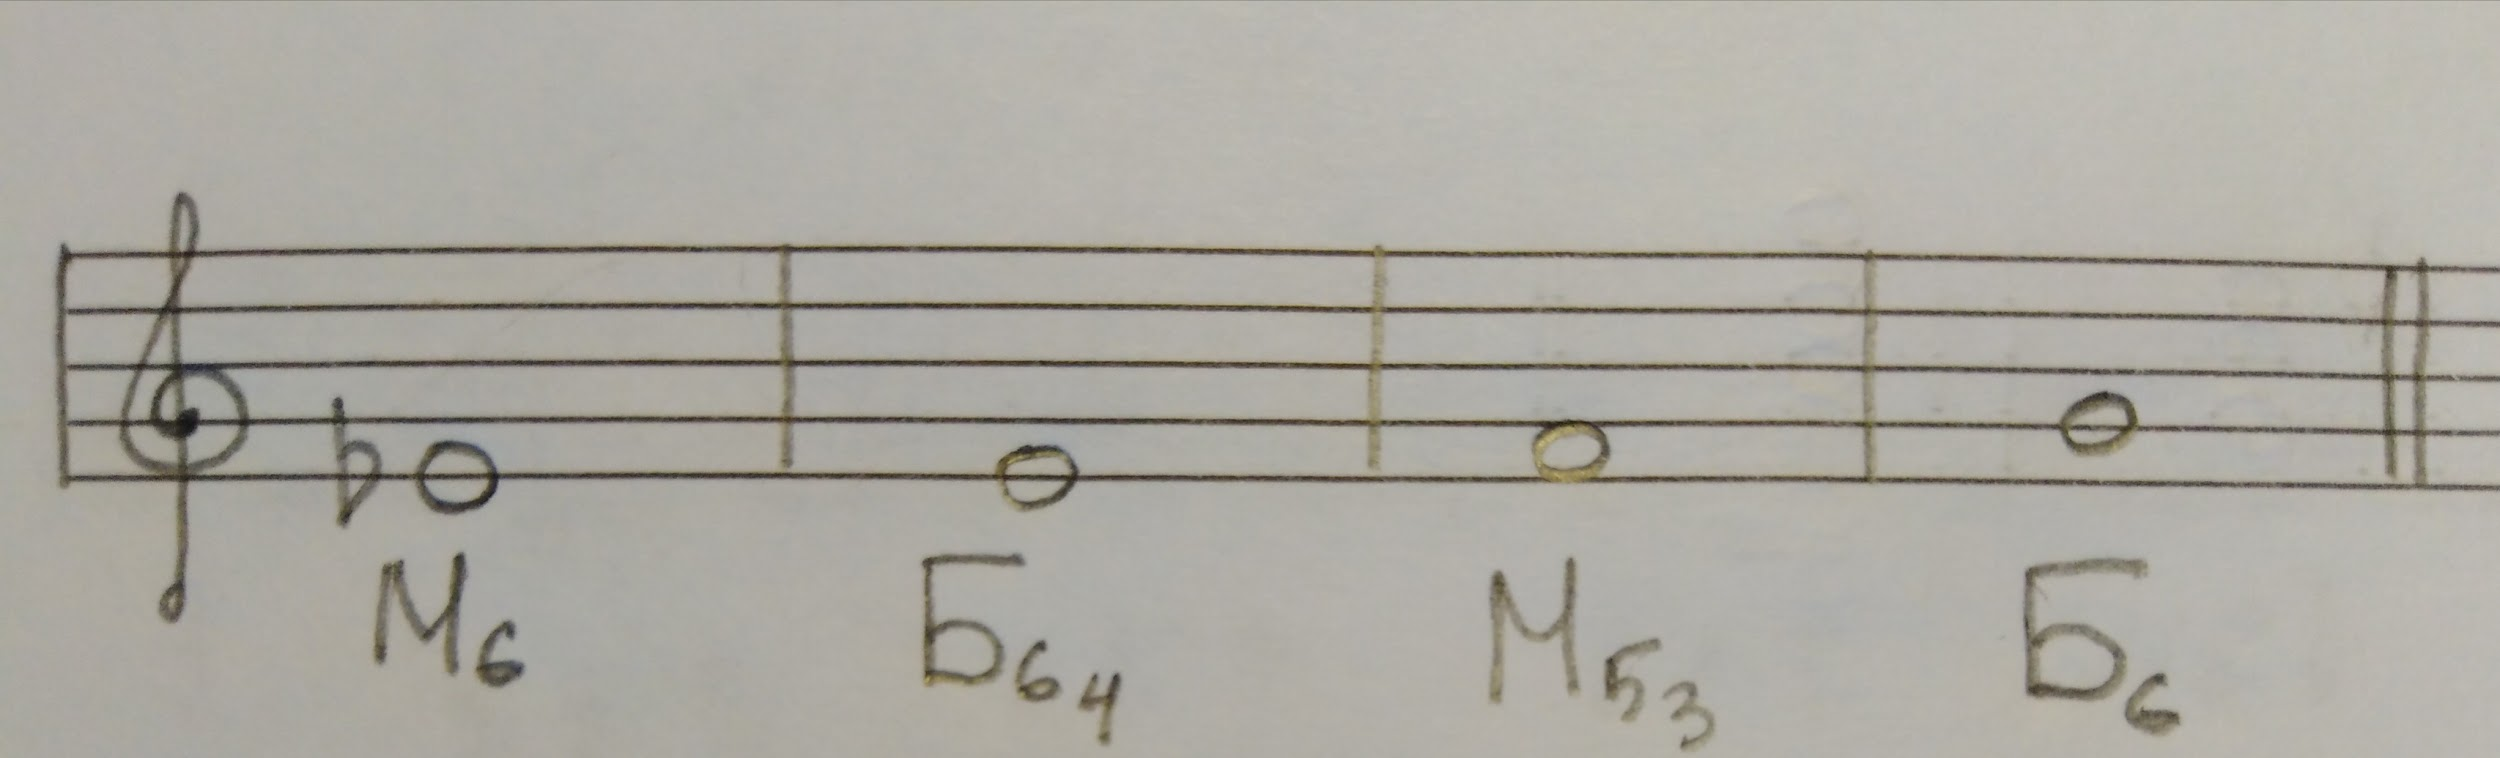 М6 Б64 М53 Б6